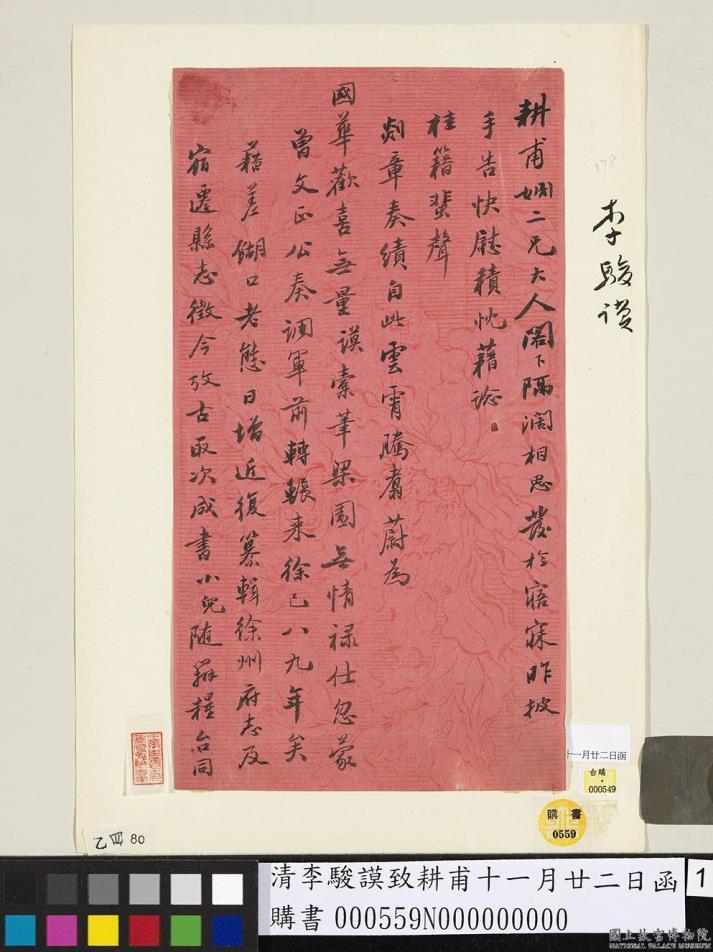 耕甫姻二兄大人閣下隔濶相思發於寤寐昨披
手告快慰積忱藉諗
桂籍蜚聲
剡章奏績自此雲霄騰翥蔚為
國華歡喜無量謨橐筆梁園無情祿仕忽蒙
曾文正公奏調軍前轉餉來徐已八九年矣
藉差餬口老態日增近復纂輯徐州府志及
宿遷縣志徵今攷古取次成書小兒隨辦糧台同
李駿謨
178
十一月廿二日函
台購
000549
購書
0559
乙四 80
清李駿謨致耕甫十一月廿二日函
購書 000559N000000000
1
國立故宮博物院
NATIONAL PALACE MUSEUM